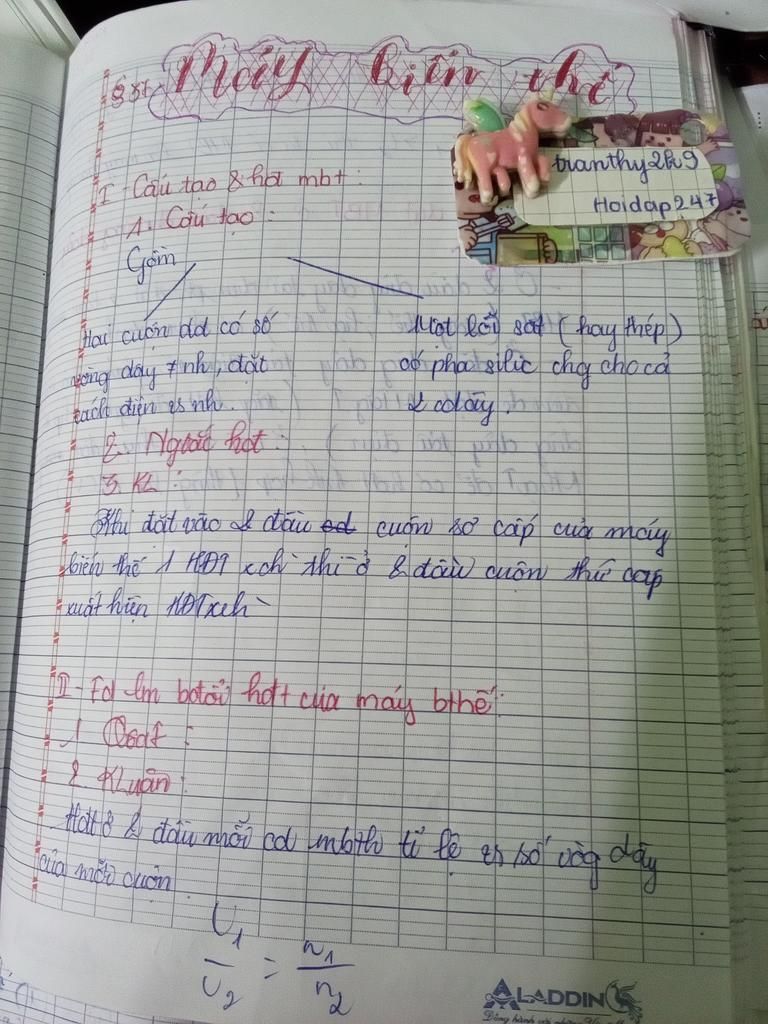 Máy biến thế
tranthy2k9
Hoidap247
I - Cấu tạo & hđ mbt:
1. Cấu tạo:
Gồm
Hai cuộn dd có số
vòng dây ≠ nh, đặt
cách điện vs nh.
Một lõi sắt (hay thép)
có pha silic chg cho cả
2 cd dây.
2. Ngtắc hđ:
3. KL:
Khi đặt vào 2 đầu cuộn sơ cấp của máy
biến thế 1 HĐT xch thì ở 2 đầu cuộn thứ cấp
xuất hiện HĐT xch
II - Td lm bđổi hđt của máy bthế:
1
2. Kluận:
Hđt ở 2 đầu mỗi cd mbth tỉ lệ vs số vòg dây
của mỗi cuộn
U1/U2 = n1/n2
ALADDIN